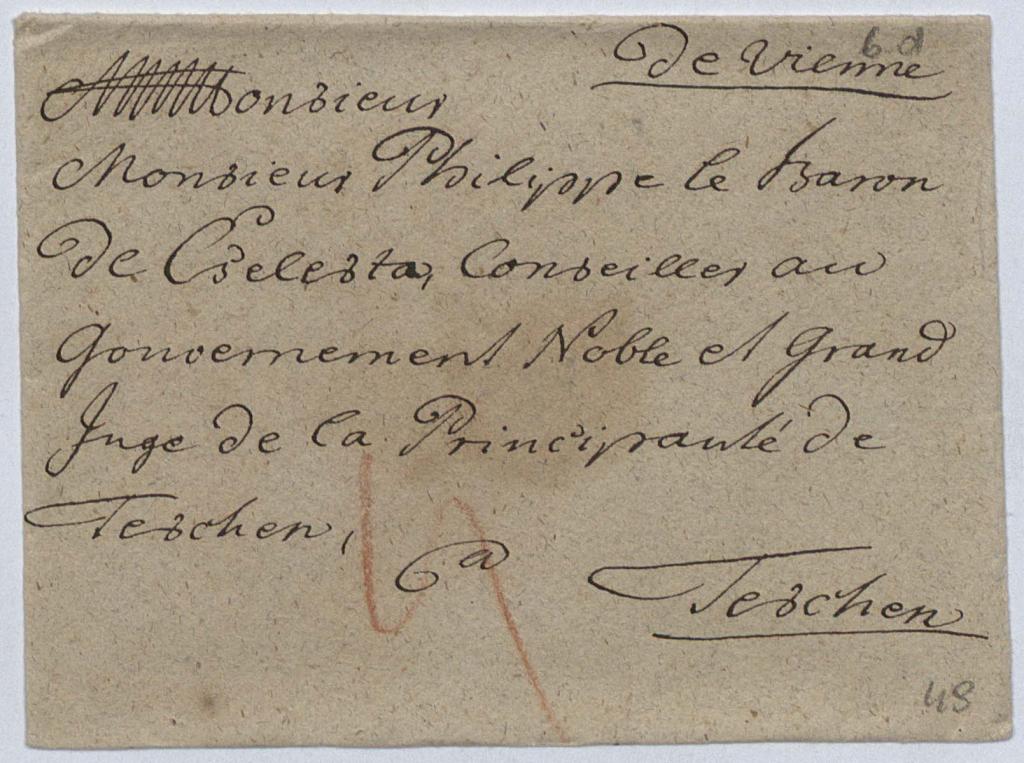 6 d
De Vienne
Monsieur
Monsieur Philippe le Baron
de Cselesta, Conseiller au
Gouvernement Noble et Grand
Juge de la Principauté de
Teschen,
a
Teschen
48